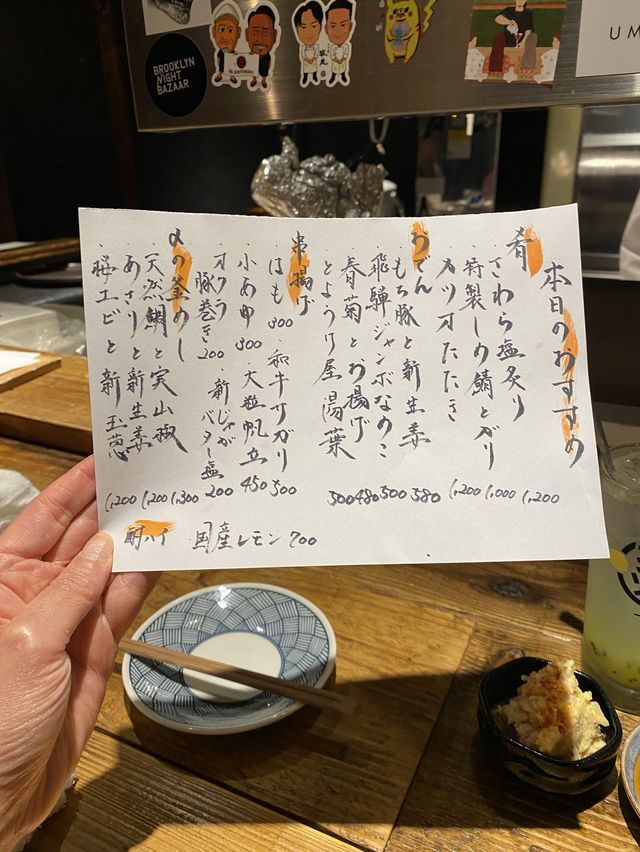 本日のおすすめ
肴
さわら塩炙り 1,200
特製しめ鯖とガリ 1,000
カツオたたき 1,200
おでん
もち豚と新生姜 580
飛騨ジャンボなめこ 500
春菊とお揚げ 480
とようけ屋湯葉 500
串揚げ
はも 300
和牛サガリ 500
小あゆ 300
大粒帆立 450
オクラ豚巻き 200
新じゃがバター塩 200
〆の釜めし
天然鯛と実山椒 1,300
あさりと新生姜 1,200
桜エビと新玉葱 1,200
酎ハイ 国産レモン 700
BROOKLYN
NIGHT
BAZAAR